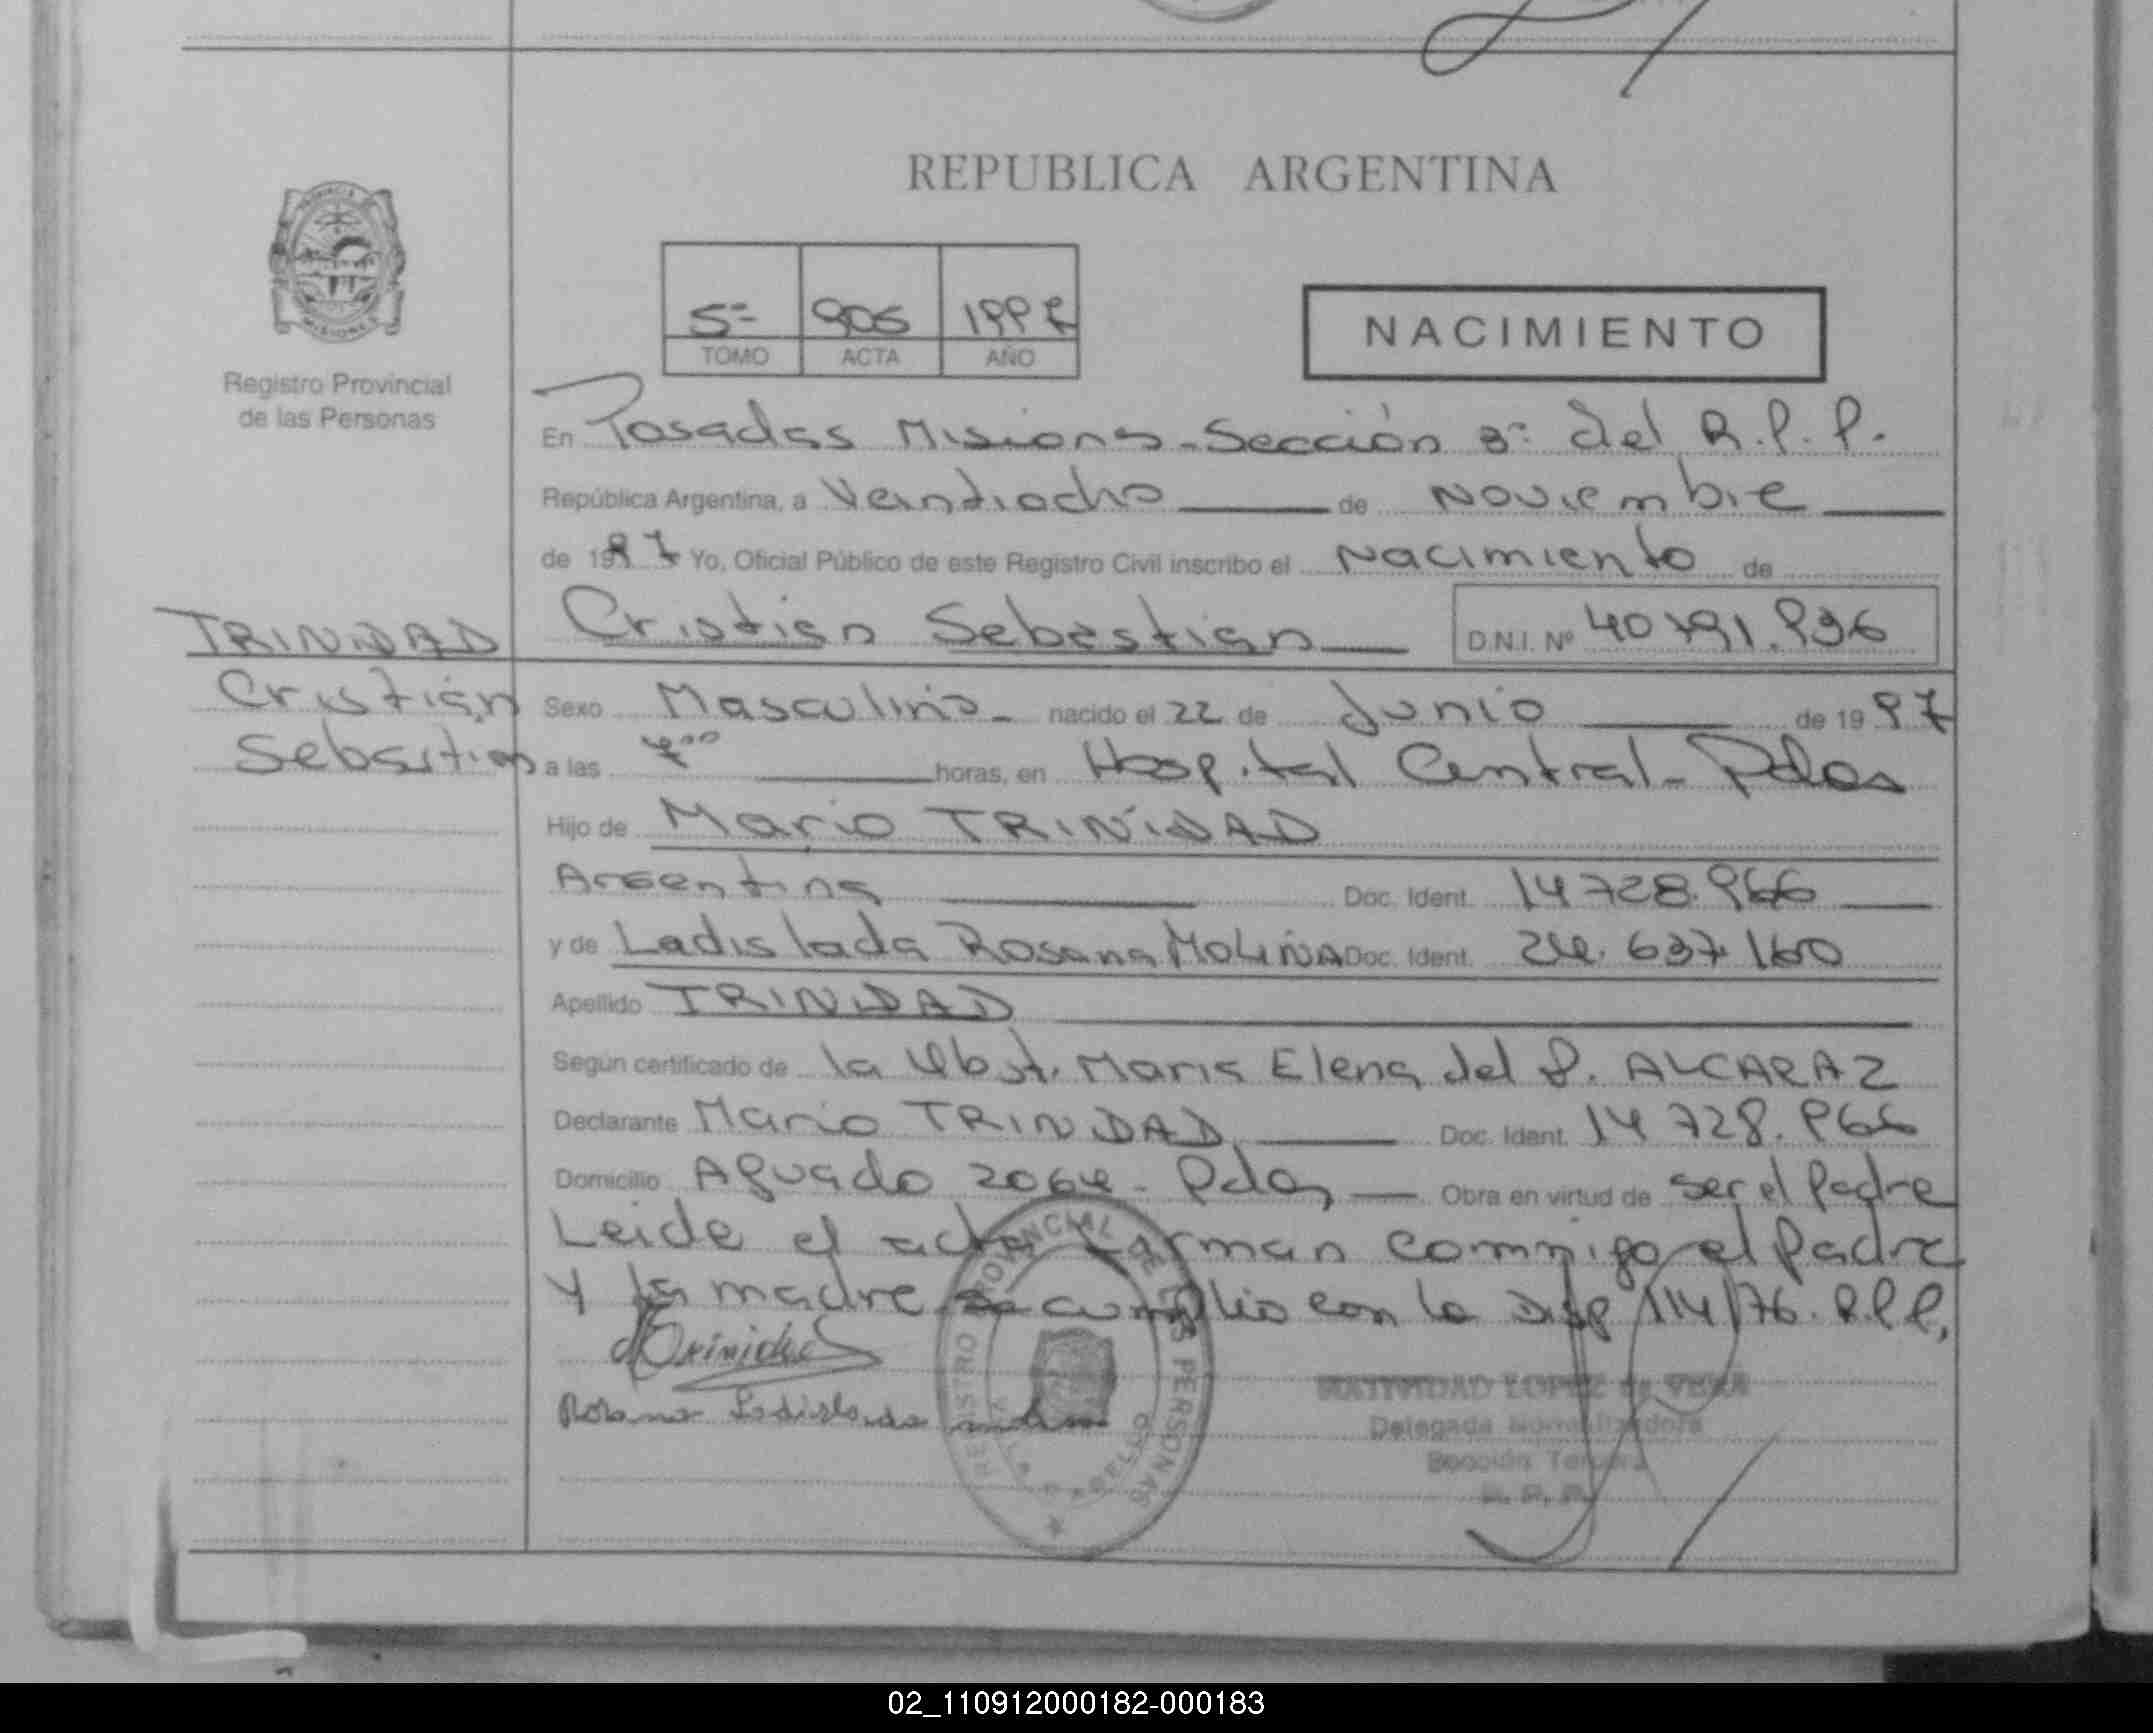 REPUBLICA ARGENTINA
PROVINCIA
MISIONES
Registro Provincial
de las Personas
5º 905 1997
TOMO ACTA AÑO
NACIMIENTO
En Posadas Misiones - Sección 3º del R.P.P.
República Argentina, a Veintiocho de Noviembre
de 1997 Yo, Oficial Público de este Registro Civil inscribo el Nacimiento de
Cristián Sebastián D.N.I. Nº 40.791.936
TRINIDAD
Cristián
Sebastian
Sexo Masculino - nacido el 22 de Junio de 1997
a las 7:00 horas, en Hospital Central - Pdas
Hijo de Mario TRINIDAD
Argentina Doc. Ident. 14.728.966
y de Ladislada Rosana MOLINA Doc. Ident. 24.637.160
Apellido TRINIDAD
Según certificado de la Obst. Maria Elena del P. ALCARAZ
Declarante Mario TRINIDAD Doc. Ident. 14.728.966
Domicilio Aguado 2064 - Pdas Obra en virtud de ser el Padre
Leida el acta firman conmigo el Padre
y la madre se cumplio con la Disp 114/76. R.P.P.
Rosana Ladislada
REGISTRO PROVINCIAL DE LAS PERSONAS
NATIVIDAD LOPEZ de VERA
Delegada Normalizadora
Sección Tercera
R. P. P.
02_110912000182-000183